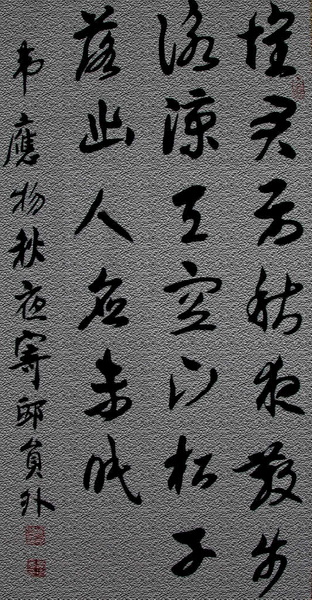 懷君屬秋夜散步
詠涼天空山松子
落幽人應未眠
韋應物秋夜寄邱員外